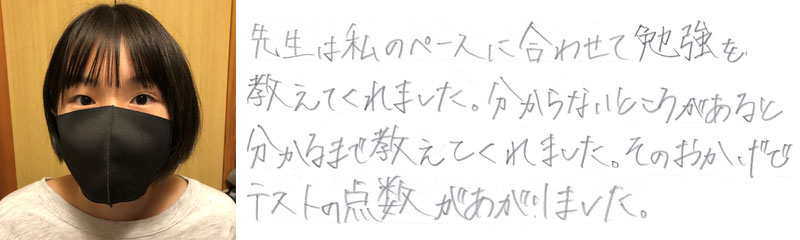 先生は私のペースに合わせて勉強を
教えてくれました。分からないところがあると
分かるまで教えてくれました。そのおかげで
テストの点数があがりました。